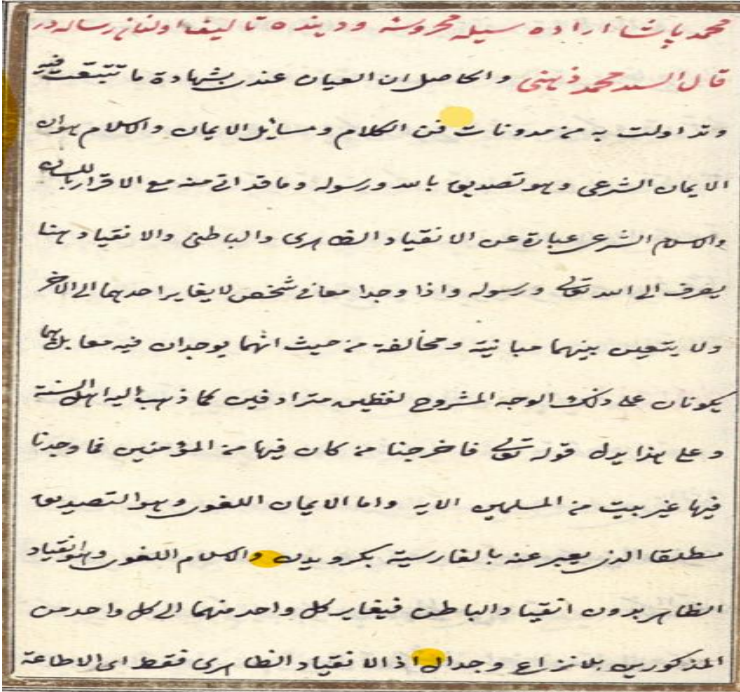 محمد پاشا اراده سيله محروسهٔ ودينده تأليف اولنان رساله در
قال السيد محمد ذهنى والحاصل ان العيان عندى بشهادة ما تتبعت فيه
وتداولت به من مدونات فن الكلام ومسائل الايمان والاسلام هو ان
الايمان الشرعى وهو تصديق بالله ورسوله وما قد اتى منه مع الاقرار باللسان
والاسلام الشرعى عبارة عن الانقياد الظاهرى والباطنى والانقياد هنا
يصرف الى الله تعالى ورسوله واذا وجدا معا فى شخص لا يغاير احدهما الى الاخر
ولا يتعين بينهما مباينة ومخالفة من حيث انهما يوجدان فيه معا بل هما
يكونان على ذلك الوجه المشروح لفظين مترادفين كما ذهب اليه اهل السنة
وعلى هذا يدل قوله تعالى فاخرجنا من كان فيها من المؤمنين فما وجدنا
فيها غير بيت من المسلمين الايه واما الايمان اللغوى وهو التصديق
مطلقا الذى يعبر عنه بالفارسية بكرويدن والاسلام اللغوى وهو انقياد
الظاهر بدون انقياد الباطن فيغاير كل واحد منهما الى كل واحد من
المذكورين بلا نزاع وجدال اذ الانقياد الظاهرى فقط اى الاطاعة